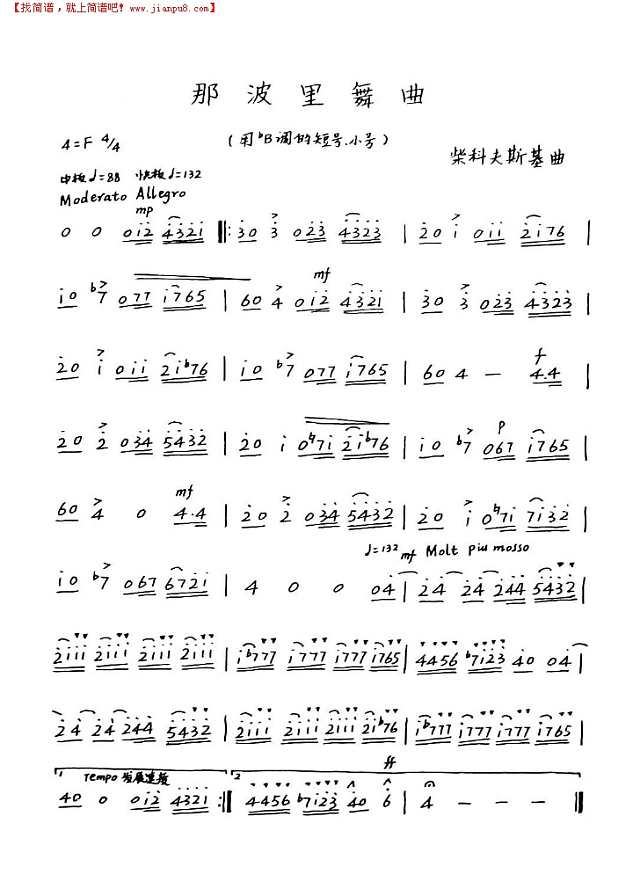 【找简谱，就上简谱吧! www.jianpu8.com】
那波里舞曲
4=F 4/4
(用♭B调的短号、小号)
柴科夫斯基曲
中板♩=88 快板♩=132
Moderato Allegro
mp
0 0 0i2 4321 ‖: 30 3 023 4323 | 20 i 0ii 2i76 |
mf
i0 ♭7 077 i765 | 60 4 0i2 4321 | 30 3 023 4323 |
f
20 i 0ii 2i♭76 | i0 ♭7 077 i765 | 60 4 — 4.4 |
p
20 2 034 5432 | 20 i 0♮7i 2i♭76 | i0 ♭7 067 i765 |
mf
60 4 0 4.4 | 20 2 034 5432 | 20 i 0♮7i 7i32 |
♩=132 mf Molt piu mosso
i0 ♭7 067 672i | 4 0 0 04 | 24 24 244 5432 |
2iii 2iii 2iii 2iii | i♭777 i777 i777 i765 | 4456 ♭7i23 40 04 |
24 24 244 5432 | 2iii 2iii 2iii 2i♭76 | i♭777 i777 i777 i765 |
1. Tempo 2. ff
40 0 0i2 4321 :‖ 4456 ♭7i23 40 6 | 4 — — — ‖